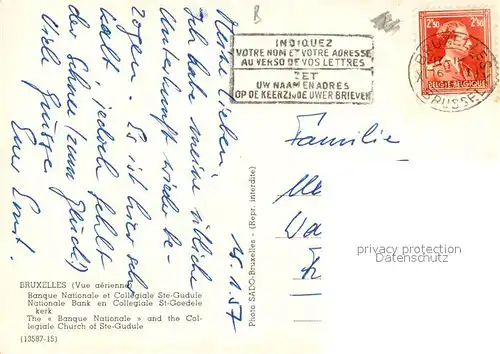 B
INDIQUEZ
VOTRE NOM ET VOTRE ADRESSE
AU VERSO DE VOS LETTRES
ZET
UW NAAM EN ADRES
OP DE KEERZIJDE UWER BRIEVEN
2F50 2F50
BELGIE-BELGIQUE
BRUSSEL
15.1.57
Meine Lieben
Ich habe meine übliche
Unterkunft wieder be-
zogen. Es ist hier sehr
kalt, jedoch fehlt
der Schnee (zum Glück!)
Viele Grüsse
Euer Ernst.
Familie
Photo SADO-Bruxelles - (Repr. interdite)
privacy protection
BRUXELLES (Vue aérienne)
Banque Nationale et Collégiale Ste-Gudule
Nationale Bank en Collegiale St-Goedele
kerk
The « Banque Nationale » and the Col-
legiale Church of Ste-Gudule
(13587-15)